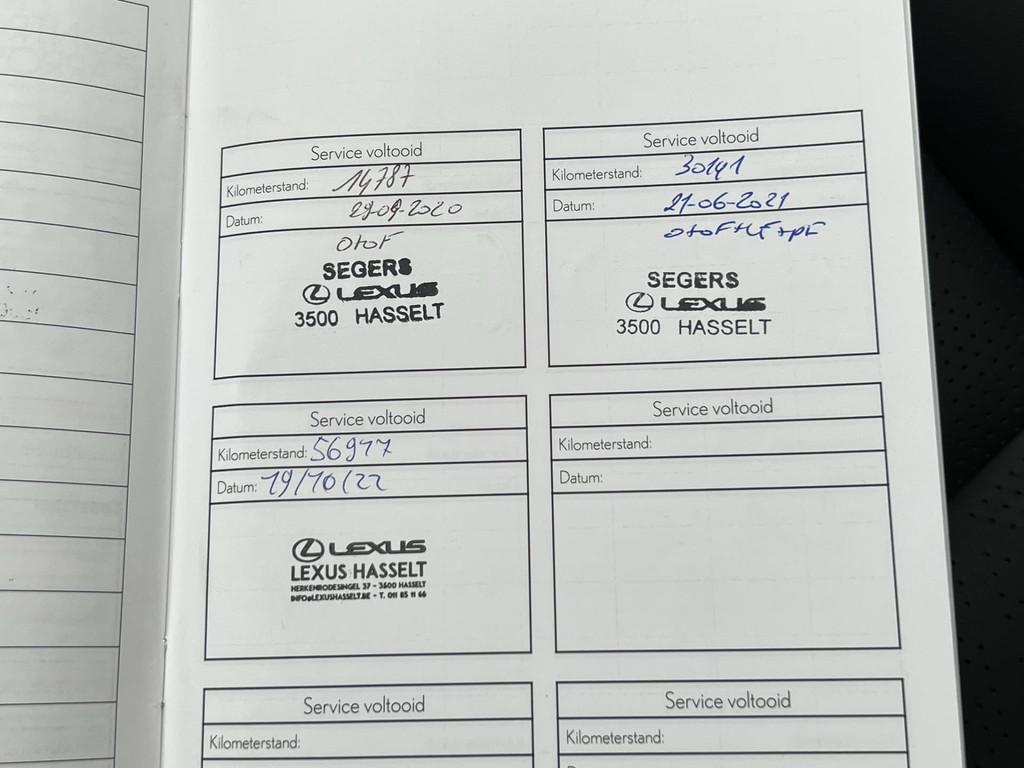 Service voltooid
Kilometerstand: 14787
Datum: 29-09-2020
OtoF
SEGERS
LEXUS
3500 HASSELT
Service voltooid
Kilometerstand: 30141
Datum: 21-06-2021
SEGERS
LEXUS
3500 HASSELT
Service voltooid
Kilometerstand: 56977
Datum: 19/10/22
LEXUS
LEXUS HASSELT
HERKENRODESINGEL 37 - 3500 HASSELT
INFO@LEXUSHASSELT.BE - T. 011 85 11 66
Service voltooid
Kilometerstand:
Datum:
Service voltooid
Kilometerstand:
Service voltooid
Kilometerstand: